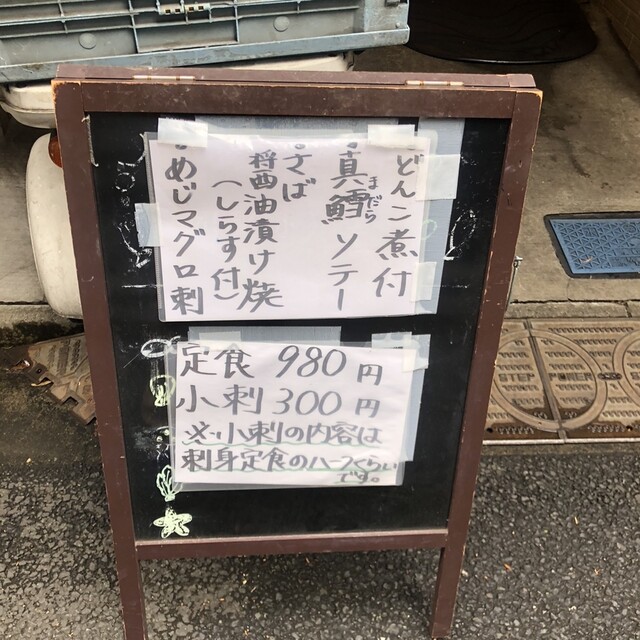 どんこ煮付
・真鱈ソテー
まだら
・さば
醤油漬け焼
(しらす付)
・めじマグロ刺
定食 980円
小刺 300円
※小刺の内容は
刺身定食のハーフくらい
です。